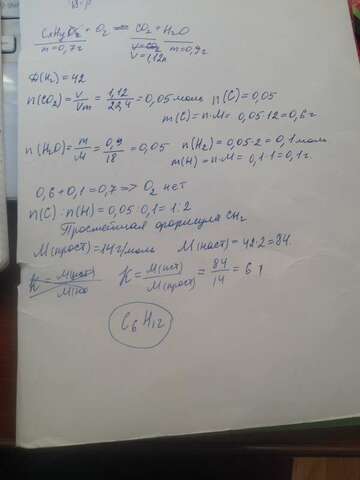 CxHyO₂ + O₂ = CO₂ + H₂O
m=0,7г V=1,12л m=0,9г
D(H₂) = 42
n(CO₂) = V/Vm = 1,12/22,4 = 0,05 моль n(C) = 0,05
m(C) = n·M = 0,05·12 = 0,6г
n(H₂O) = m/M = 0,9/18 = 0,05 n(H₂) = 0,05·2 = 0,1 моль
m(H) = n·M = 0,1·1 = 0,1г.
0,6 + 0,1 = 0,7 => O₂ нет
n(C) : n(H) = 0,05 : 0,1 = 1:2
Простейшая формула CH₂
M(прост) = 14 г/моль M(наст) = 42·2 = 84.
K = M(ист)/M(прост) = 84/14 = 6
C₆H₁₂